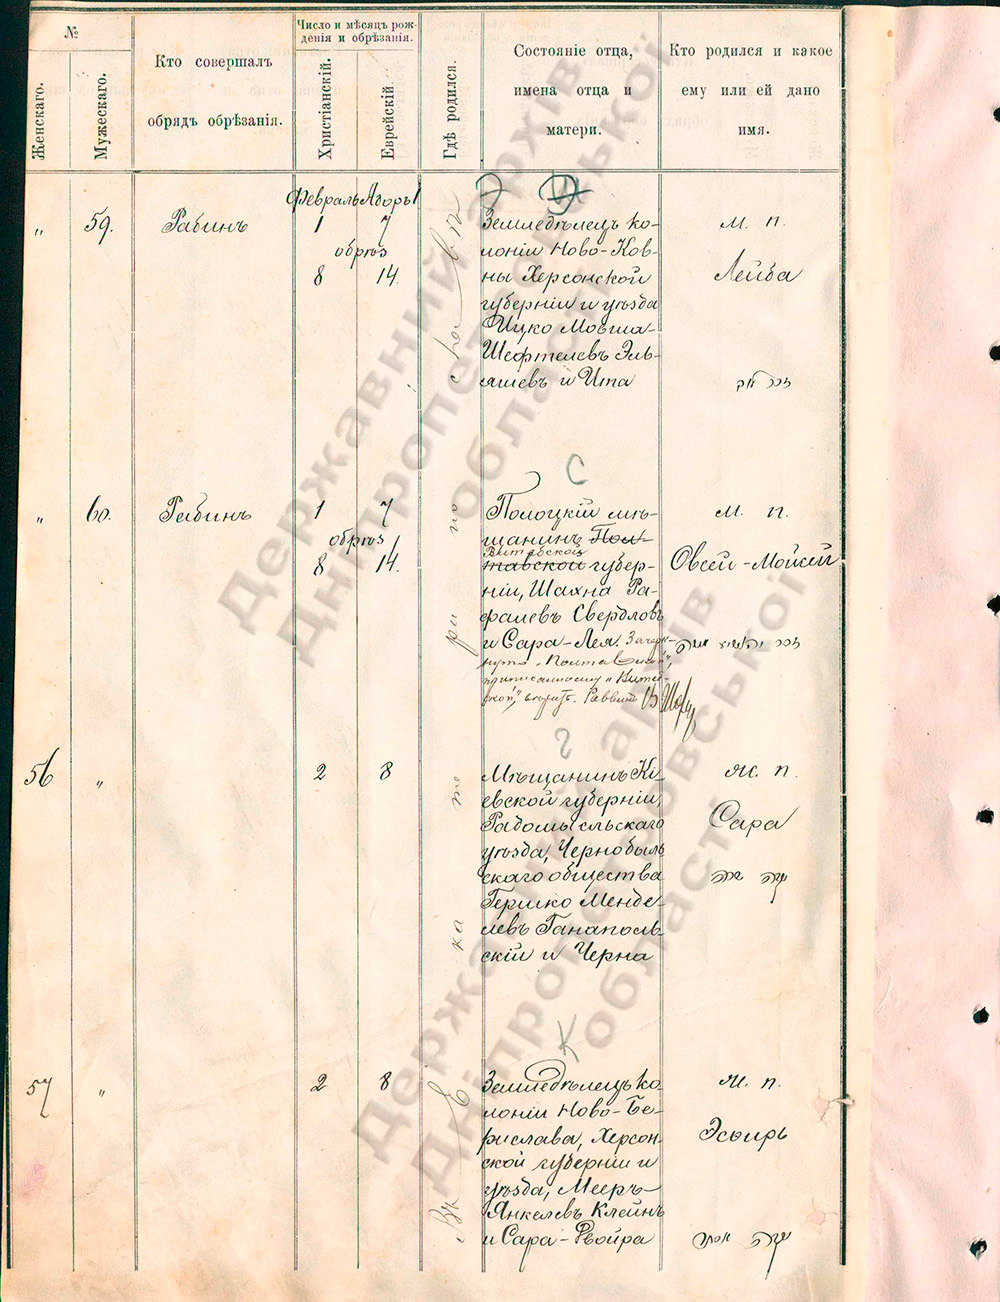 №
Женскаго.
Мужескаго.
Кто совершалъ
обрядъ обрѣзанія.
Число и мѣсяцъ рож-
денія и обрѣзанія.
Христіанскій.
Еврейскій.
Гдѣ родился.
Состояніе отца,
имена отца и
матери.
Кто родился и какое
ему или ей дано
имя.
Февраль Адоръ 1
Э Э
„ 59. Рабинъ 1 7
обрѣз
8 14.
Земледѣлецъ ко-
лоніи Ново-Ков-
ны Херсонской
губерніи и уѣзда
Ицко Мовша-
Шефтелевъ Эль-
яшевъ и Ита
м. п.
Лейба
זכר לאב
С
„ 60. Рабинъ 1 7
обрѣз
8 14.
Полоцкій мѣ-
щанинъ Пол-
Витебской
тавской губер-
ніи, Шахна Ра-
фаиевъ Свердловъ
и Сара-Лея. Зачер-
кнуто „Полтавской",
приписанному „Витеб-
ской," вѣрить. Раввинъ
м. п.
Овсей-Мойсей
זכר יהושע משה
Г
56 „ 2 8
Мѣщанинъ Кі-
евской губерніи,
Радомысльскаго
уѣзда, Чернобыль
скаго общества
Гершко Менде-
левъ Ганаполь-
скій и Черна
ж. п.
Сара
נקבה שרה
К
57 „ 2 8
Земледѣлецъ ко
лоніи Ново-Бе-
рислава, Херсон-
ской губерніи и
уѣзда, Мееръ-
Янкелевъ Клейнъ
и Сара-Двойра
ж. п.
Эсѳирь
נקבה אסתר
Въ Екатеринославѣ
Державний архів
Дніпропетровської
області
Державний архів
Дніпропетровської
області